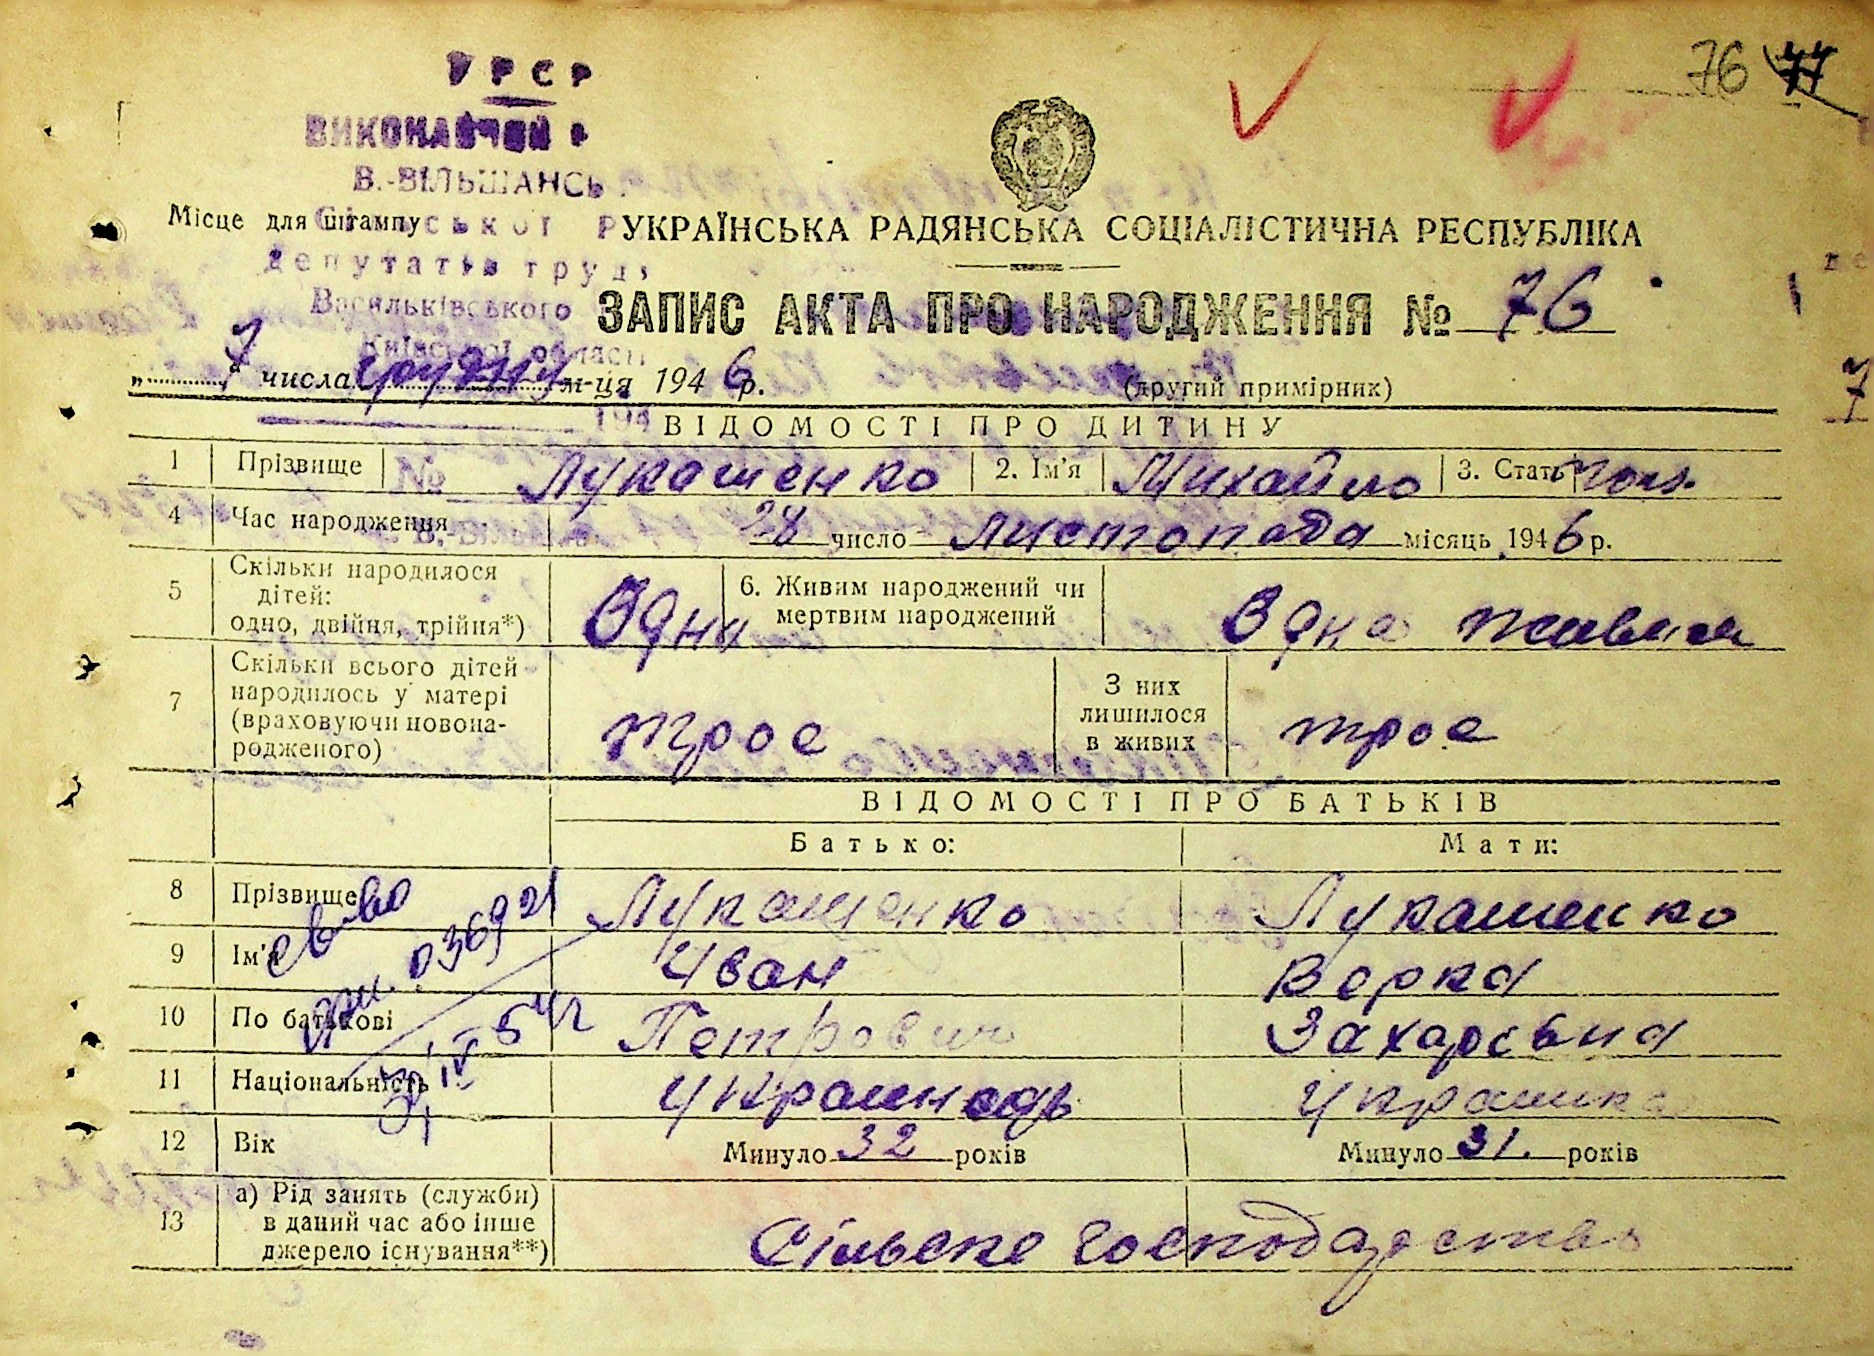 76 77
УРСР
ВИКОНАВЧИЙ
В.-ВІЛЬШАНСЬ
Місце для штампу
Сільської Р
УКРАЇНСЬКА РАДЯНСЬКА СОЦІАЛІСТИЧНА РЕСПУБЛІКА
депутатів труд
Васильківського
ЗАПИС АКТА ПРО НАРОДЖЕННЯ № 76
Київської області
„7" числа грудня м-ця 1946 р.
(другий примірник)
194
ВІДОМОСТІ ПРО ДИТИНУ
1 Прізвище № Лукашенко 2. Ім'я Михайло 3. Стать чол.
4 Час народження 28 число листопада місяць 1946 р.
5 Скільки народилося дітей: одно, двійня, трійня*) Одна 6. Живим народжений чи мертвим народжений Одна живим
7 Скільки всього дітей народилось у матері (враховуючи новонародженого) трое З них лишилося в живих трое
ВІДОМОСТІ ПРО БАТЬКІВ
Батько: Мати:
8 Прізвище Лукашенко Лукашенко
9 Ім'я Иван Верка
10 По батькові Петрович Захаровна
11 Національність Украинець Украинка
12 Вік Минуло 32 років Минуло 31. років
13 а) Рід занять (служби) в даний час або інше джерело існування**) Сільске господарство
св-во
036921